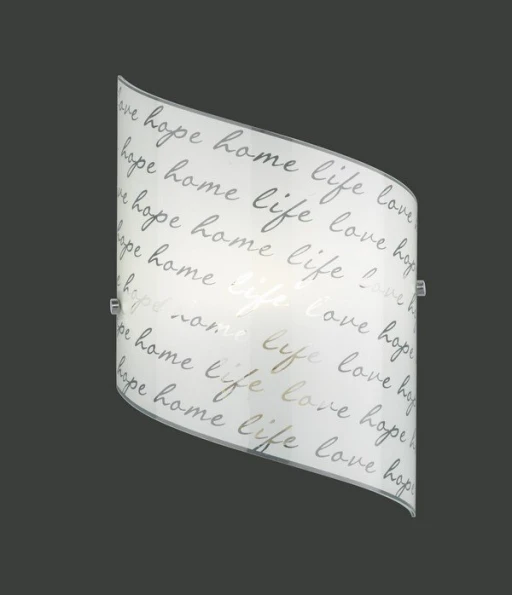 love hope home life love
hope home life love hope
hope home life love h
hope home life love hope
hope home life love hop
hope home life love hope
hope home life love hope